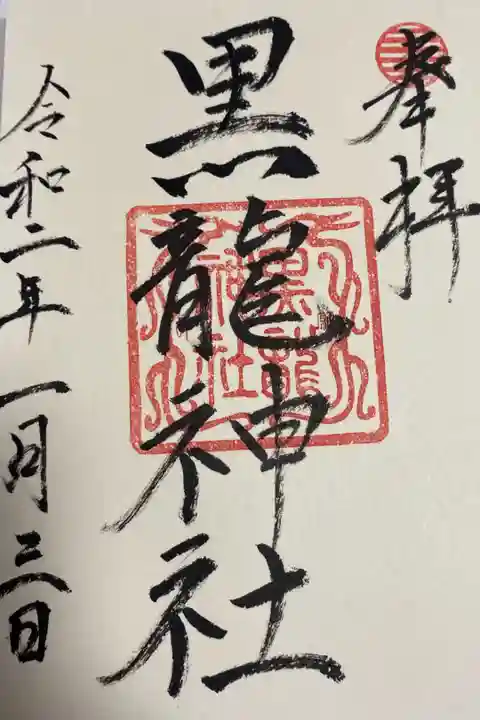 奉拝
黒龍神社
黒龍
神社
令和二年一月三日